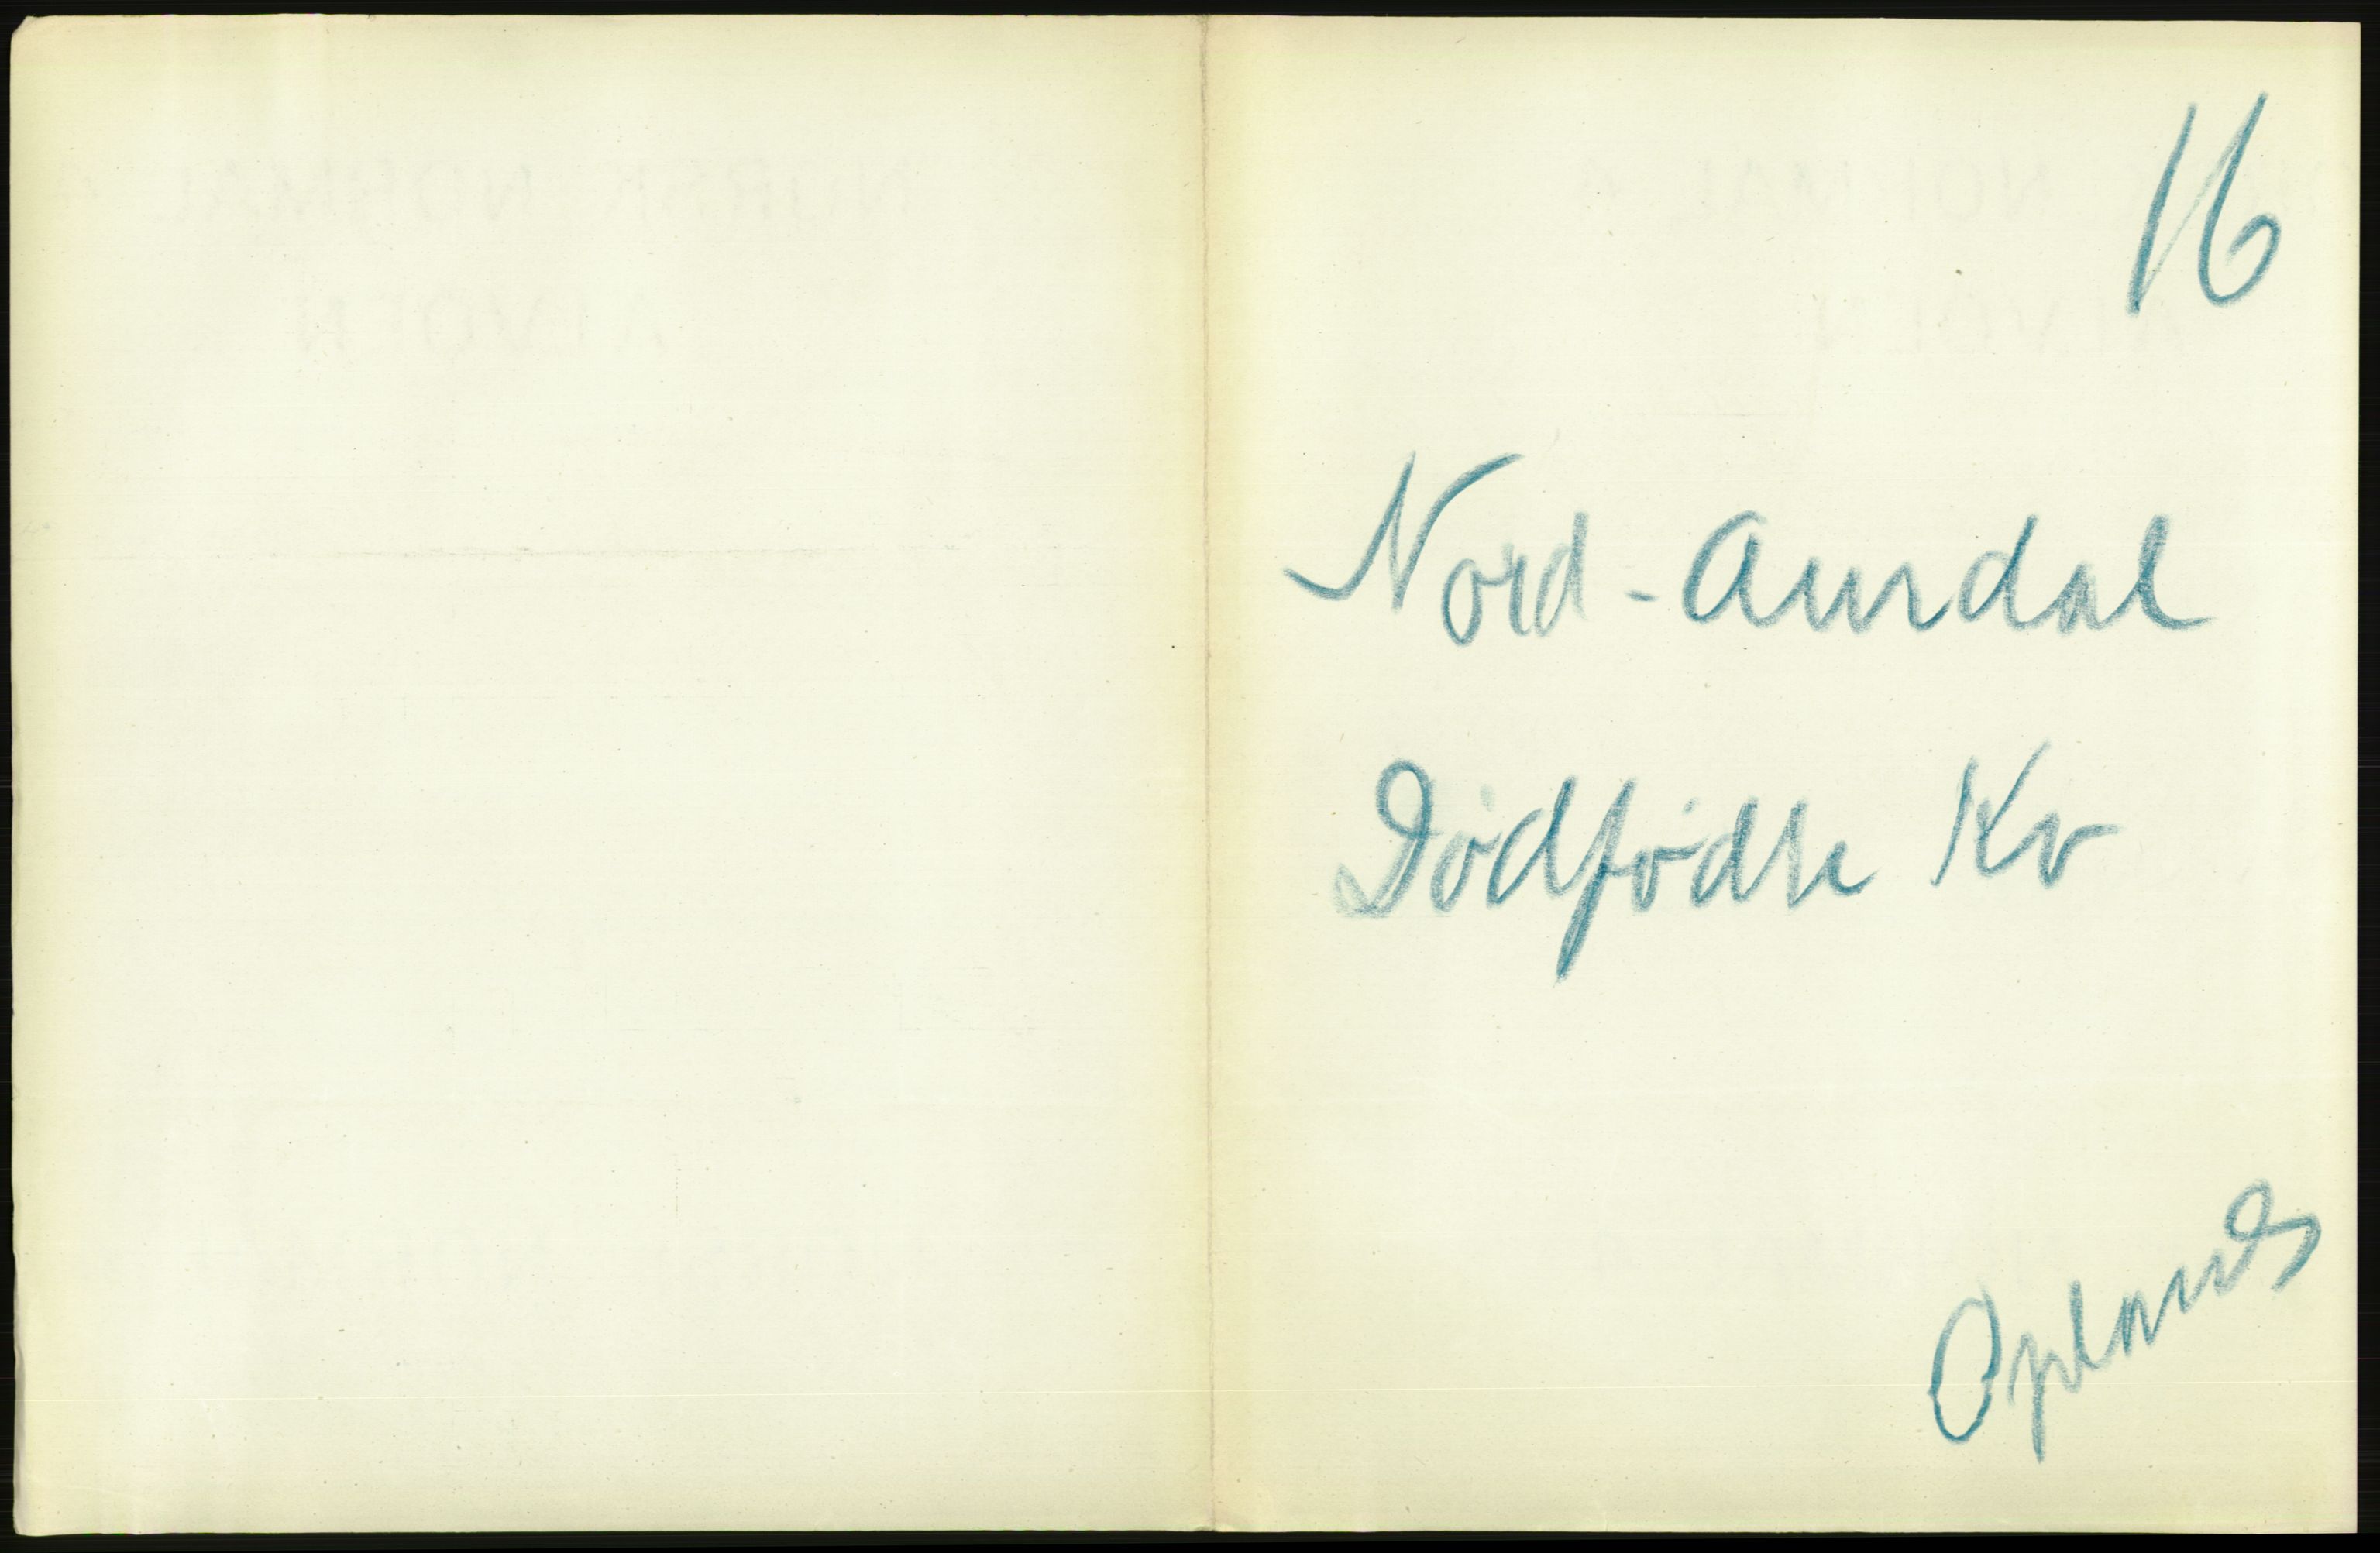 16
Nord-Aurdal
Dødfødte Kv
Oplands